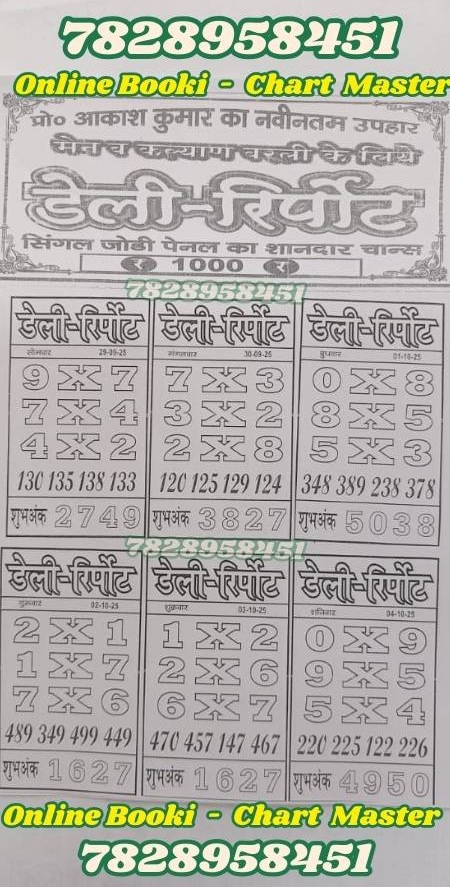 7828958451
Online Booki - Chart Master
प्रो० आकाश कुमार का नवीनतम उपहार
मेन व कल्याण वरली के लिये
डेली-रिर्पोट
सिंगल जोडी पेनल का शानदार चान्स
1000
7828958451
डेली-रिर्पोट
सोमवार 29-09-25
9 X 7
7 X 4
4 X 2
130 135 138 133
शुभअंक 2749
डेली-रिर्पोट
मंगलवार 30-09-25
7 X 3
3 X 2
2 X 8
120 125 129 124
शुभअंक 3827
डेली-रिर्पोट
बुधवार 01-10-25
0 X 8
8 X 5
5 X 3
348 389 238 378
शुभअंक 5038
7828958451
डेली-रिर्पोट
गुरुवार 02-10-25
2 X 1
1 X 7
7 X 6
489 349 499 449
शुभअंक 1627
डेली-रिर्पोट
शुक्रवार 03-10-25
1 X 2
2 X 6
6 X 7
470 457 147 467
शुभअंक 1627
डेली-रिर्पोट
शनिवार 04-10-25
0 X 9
9 X 5
5 X 4
220 225 122 226
शुभअंक 4950
Online Booki - Chart Master
7828958451